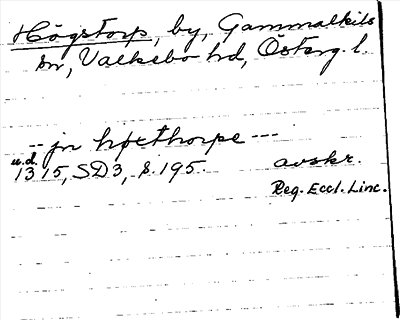 Högstorp, by, Gammalkils
sn, Valkebo hd, Österg. l.
-- jn høxthorpe ---
u.d.
1315, SD3, s. 195. avskr.
Reg. Eccl. Linc.